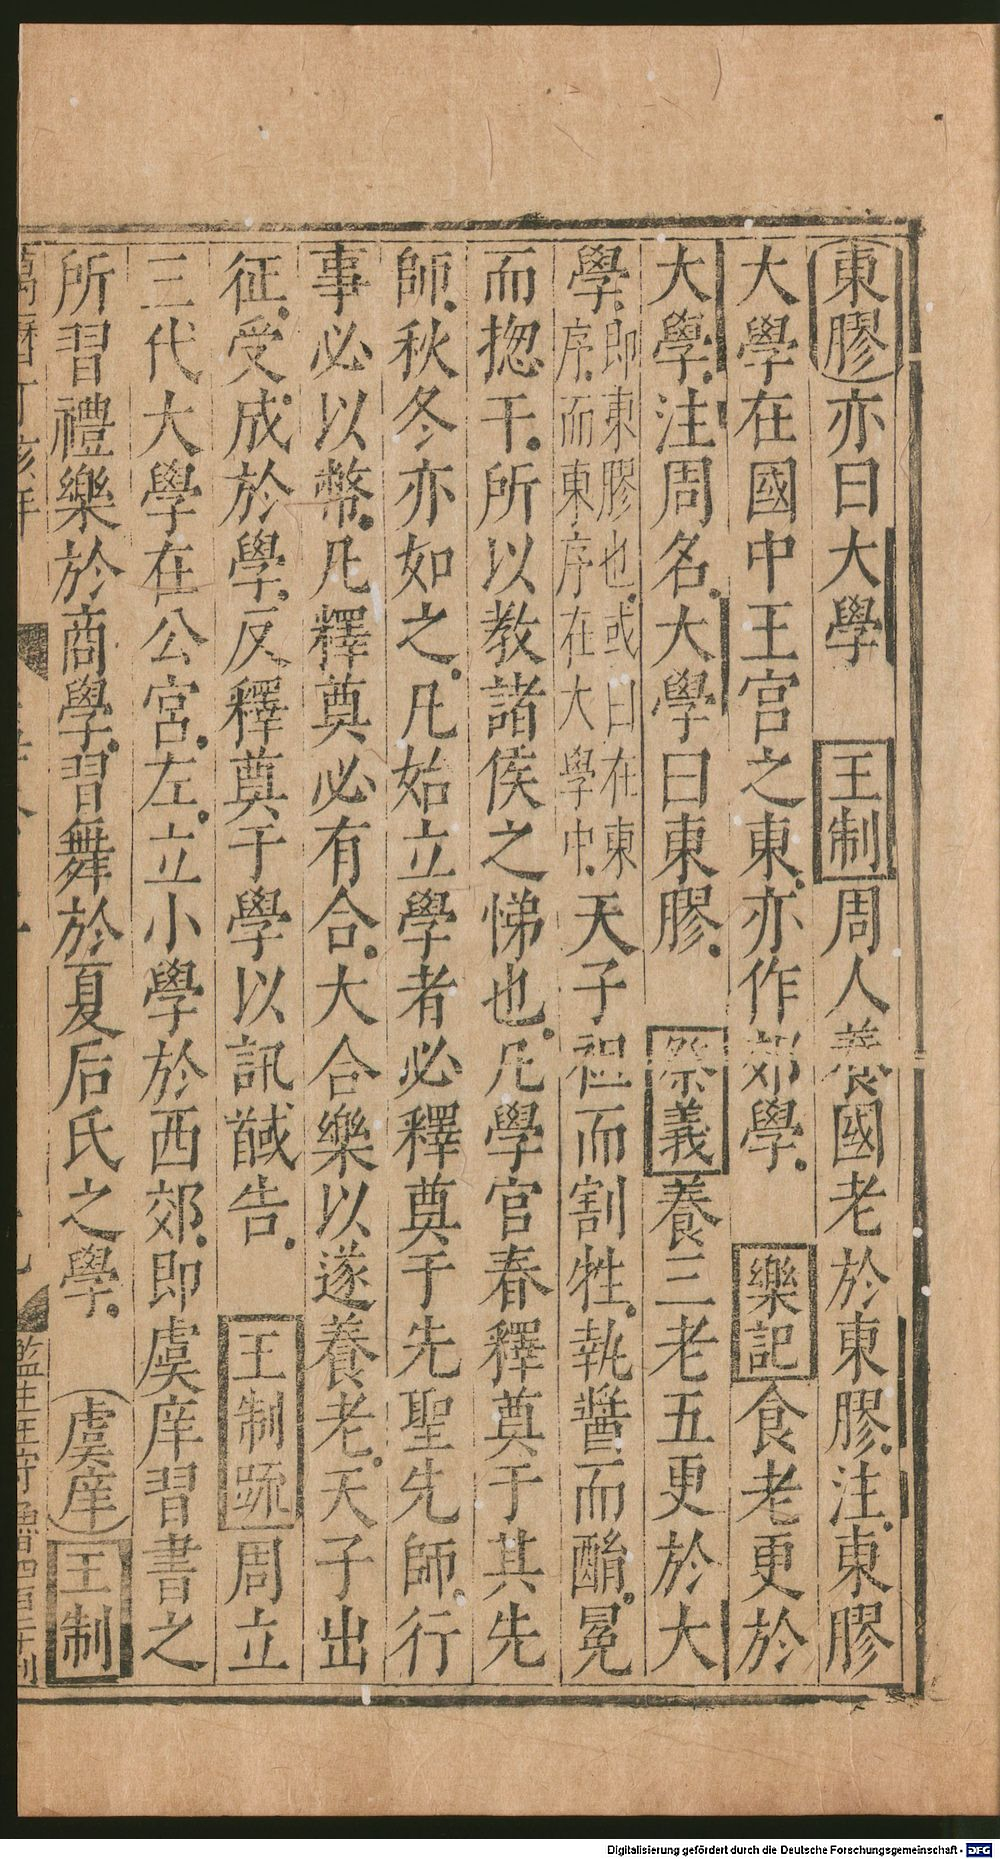 東膠亦曰大學　王制周人養國老於東膠注東膠
大學在國中王宮之東亦作郊學　樂記食老更於
大學注周名大學曰東膠　祭義養三老五更於大
學即東膠也或曰在東序而東序在大學中天子袒而割牲執醬而酳冕
而揔干所以教諸侯之悌也凡學官春釋奠于其先
師秋冬亦如之凡始立學者必釋奠于先聖先師行
事必以幣凡釋奠必有合大合樂以遂養老天子出
征受成於學反釋奠于學以訊馘告　王制疏周立
三代大學在公宮左立小學於西郊即虞庠習書之
所習禮樂於商學習舞於夏后氏之學　虞庠王制
Digitalisierung gefördert durch die Deutsche Forschungsgemeinschaft - DFG